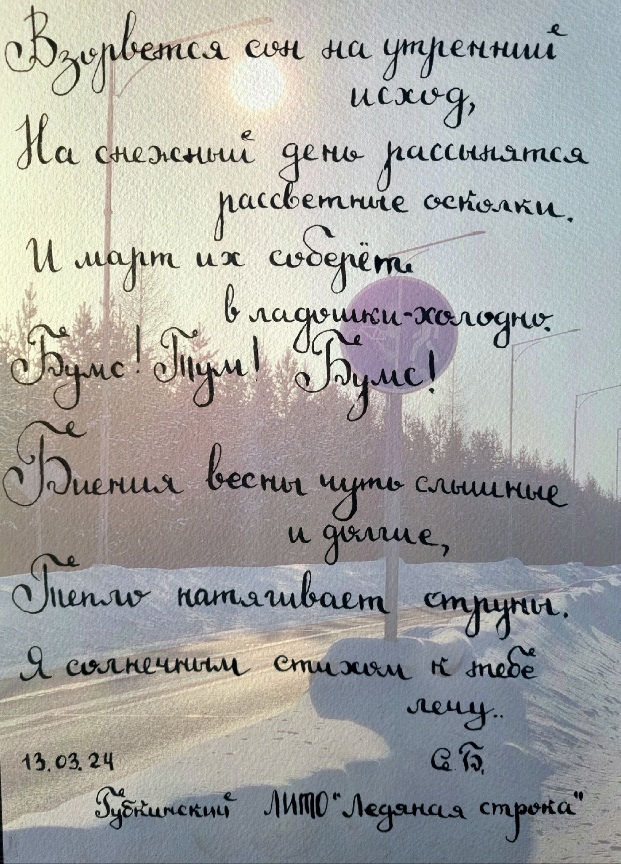 Взорвется сон на утренний
исход,
На снежный день рассыпятся
рассветные осколки.
И март их соберёт
в ладошки-холодно.
Бумс! Тум! Бумс!
Биения весны чуть слышные
и долгие,
Тепло натягивает струны.
Я солнечным стихом к тебе
лечу..
13.03.24 С.Б.
Губкинский ЛИТО "Ледяная строка"